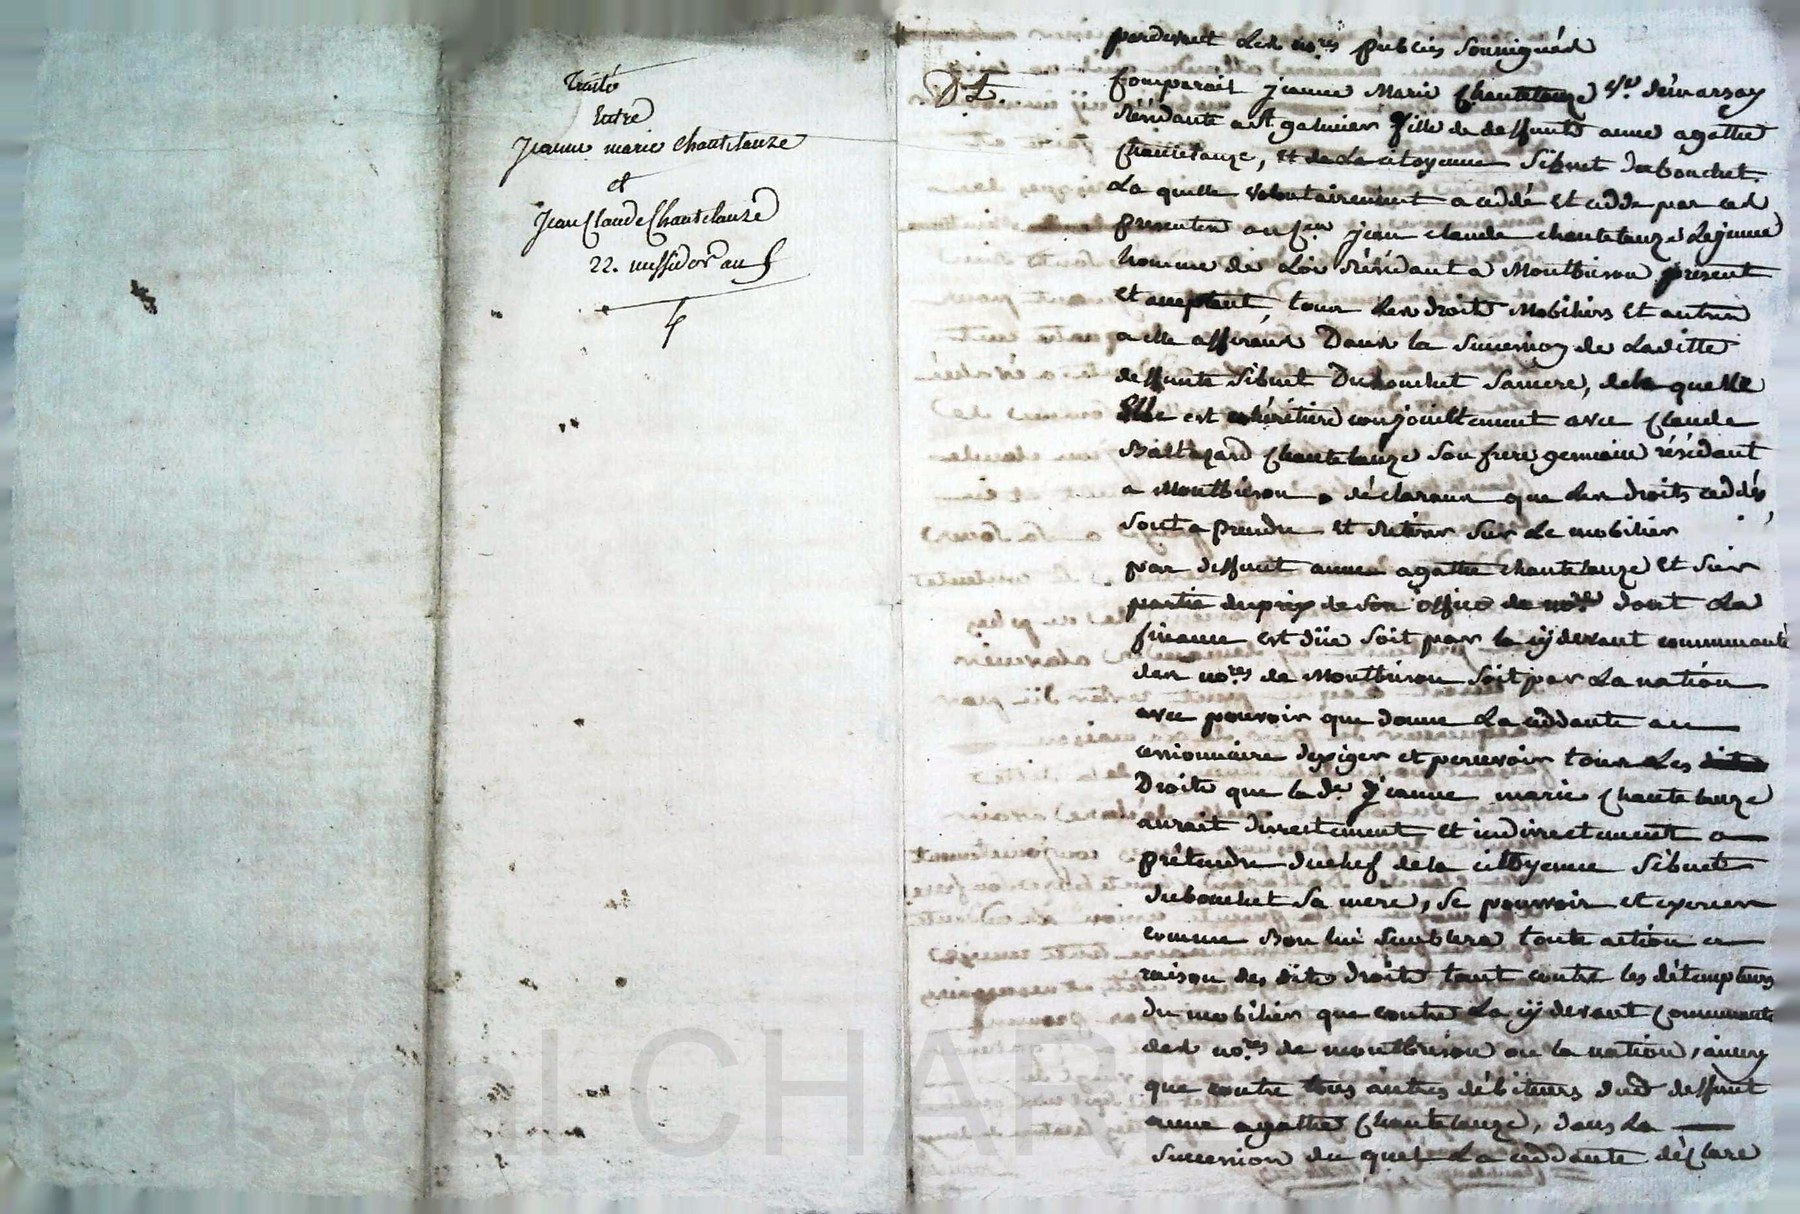 Traité
Entre
Jeanne marie Chantelauze
et
Jean Claude Chantelauze
22. messidor an 5
pardevant Les no.res publics soussignés
Comparait jeanne Marie Chantelauze v.e
résidante a St galmier fille de deffunt anne agathe
Chantelauze, et de La citoyenne Sibuet dubouchet.
La quelle volontairement a cédé et cedde par ces
presentes au C.en jean claude chantelauze Lejeune
homme de Loi résidant a Montbrison présent
et acceptant, tous Les droits Mobiliers et autres
a elle afferants Dans la succession de Laditte
deffunte Sibuet Dubouchet sa mere, de la quelle
Elle est cohéritiere conjointement avec Claude
Baltazard Chantelauze son frere germain résidant
a Montbrison déclarant que Les droits ceddés,
sont a prendre et retirer sur Le mobilier
par deffunt anne agathe chantelauze et sur
partie du prix de son office de no.re dont La
finance est düe soit par la cy devant communauté
des no.res de Montbrison soit par La nation
avec pouvoir que donne La ceddante au
cessionnaire d'exiger et percevoir tous Les
Droits que la d.e jeanne marie Chantelauze
aurait directement et indirectement a
prétendre du chef de la citoyenne Sibuet
dubouchet sa mere, se pourvoir et exercer
comme Bon lui semblera toute action a
raison des dits droits tant contre les détempteurs
du mobilier que contre La cy devant Communauté
des no.res de montbrison ou la nation,
que contre tous autres débiteurs dud deffunt
anne agathe Chantelauze, dans La
succession du quel La ceddante déclare
Pascal CHAR